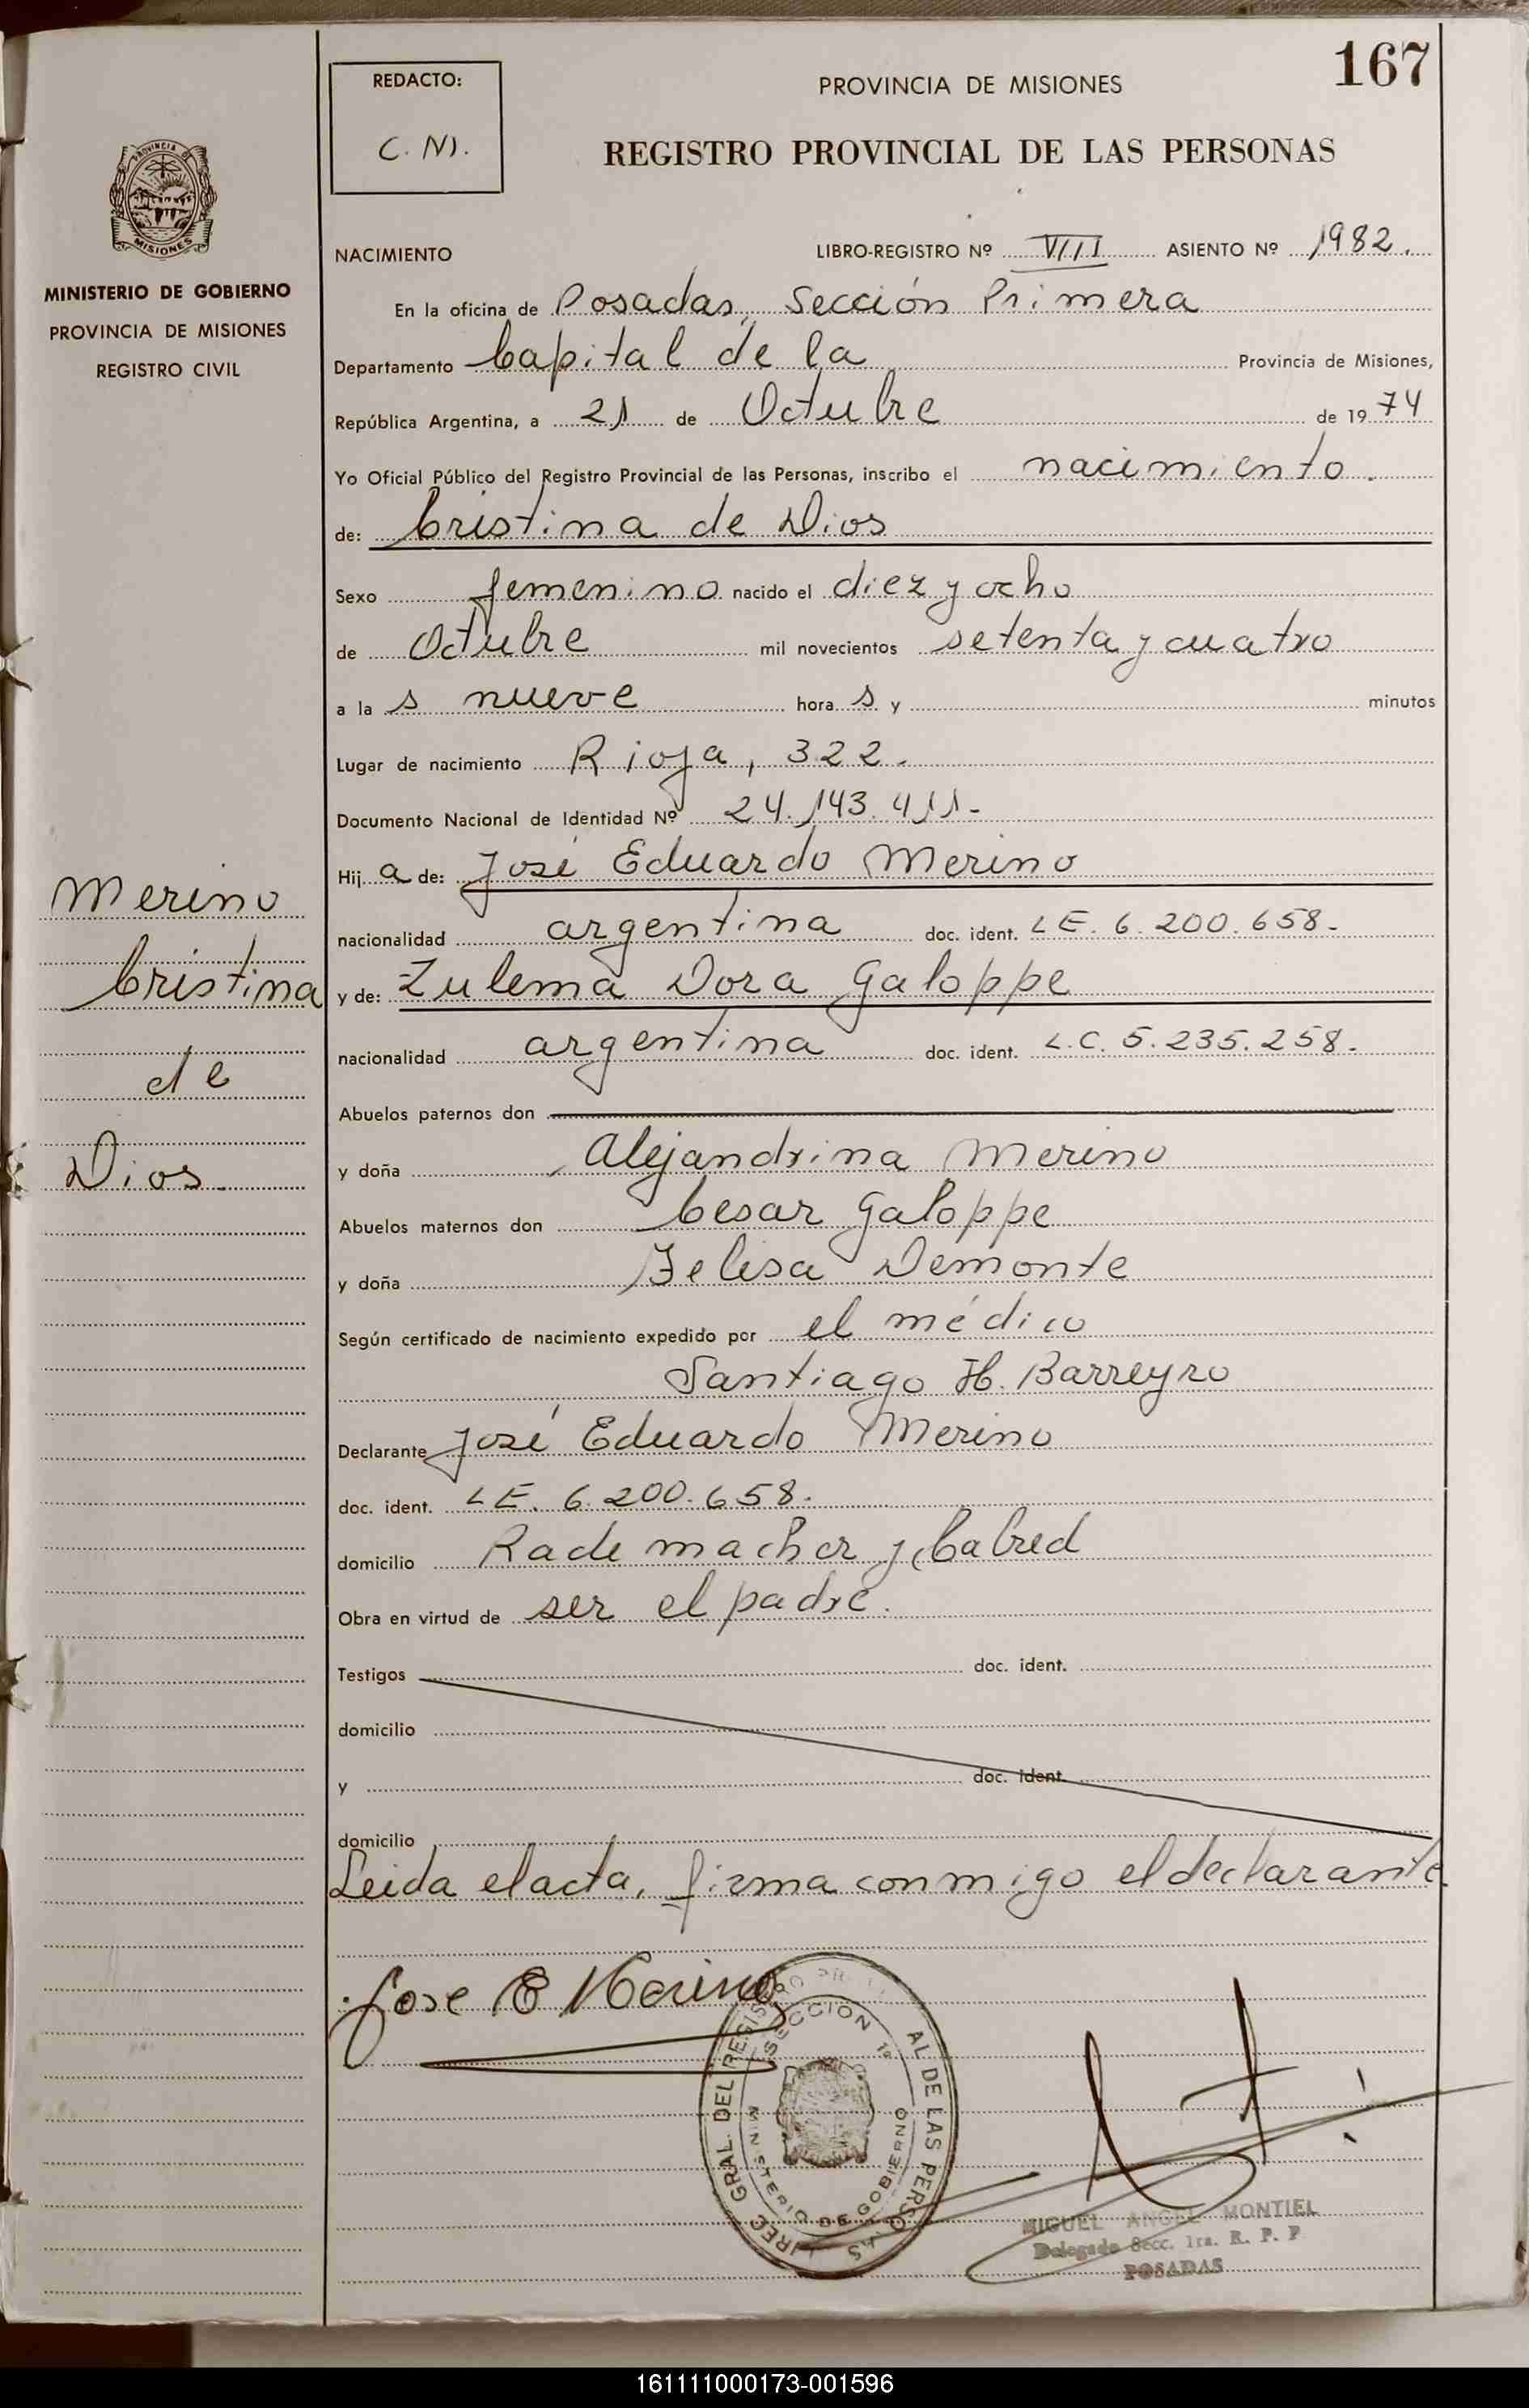 167
REDACTO:
C. M.
PROVINCIA DE MISIONES
REGISTRO PROVINCIAL DE LAS PERSONAS
PROVINCIA DE
MISIONES
MINISTERIO DE GOBIERNO
PROVINCIA DE MISIONES
REGISTRO CIVIL
NACIMIENTO LIBRO-REGISTRO Nº VIII ASIENTO Nº 1982.
En la oficina de Posadas, Sección Primera
Departamento Capital de la Provincia de Misiones,
República Argentina, a 21 de Octubre de 1974
Yo Oficial Público del Registro Provincial de las Personas, inscribo el nacimiento.
de: Cristina de Dios
Sexo femenino nacido el diez y ocho
de Octubre mil novecientos setenta y cuatro
a la s nueve hora s y minutos
Lugar de nacimiento Rioja, 322.
Documento Nacional de Identidad Nº 24.143.411.-
Hij a de: José Eduardo Merino
nacionalidad argentina doc. ident. LE. 6.200.658.-
y de: Zulema Dora Galoppe
nacionalidad argentina doc. ident. L.C. 5.235.258.-
Abuelos paternos don
y doña Alejandrina Merino
Abuelos maternos don Cesar Galoppe
y doña Felisa Demonte
Según certificado de nacimiento expedido por el médico
Santiago H. Barreyro
Declarante José Eduardo Merino
doc. ident. LE. 6.200.658.
domicilio Rademacher y Cabred
Obra en virtud de ser el padre.
Testigos doc. ident.
domicilio
y doc. ident.
domicilio
Leida el acta, firma conmigo el declarante.
Merino
Cristina
de
Dios.
Jose E Merino
DIREC. GRAL. DEL REGISTRO PROVINCIAL DE LAS PERSONAS
SECCION 1ª
MINISTERIO DE GOBIERNO
MIGUEL ANGEL MONTIEL
Delegado Secc. 1ra. R. P. P
POSADAS
161111000173-001596